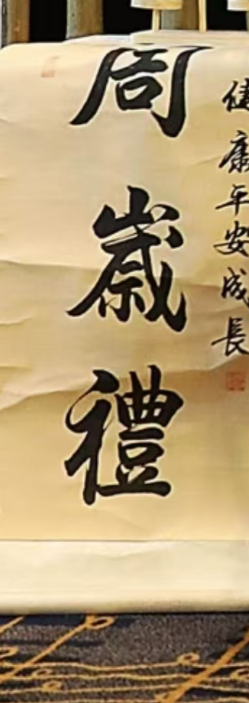 健康平安成長
周歲禮